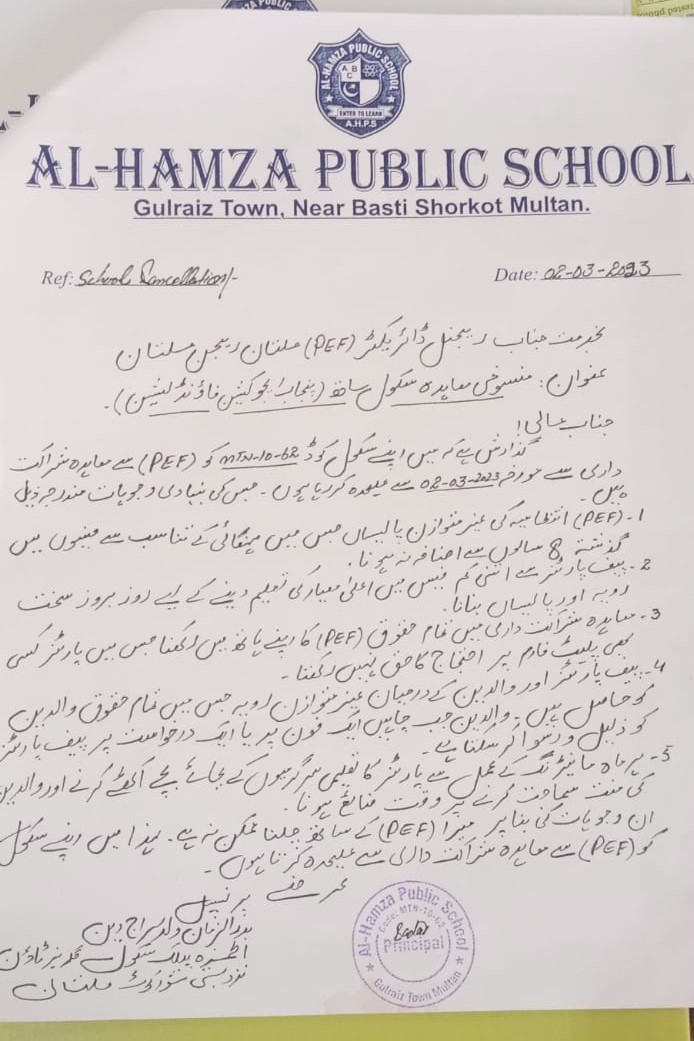 AL-HAMZA PUBLIC SCHOOL
A B C
ENTER TO LEARN
A.H.P.S
AL-HAMZA PUBLIC SCHOOL
Gulraiz Town, Near Basti Shorkot Multan.
Ref: School Cancellation/-
Date: 02-03-2023
بخدمت جناب ریجنل ڈائریکٹر (PEF) ملتان ریجن ملتان
عنوان: منسوخی معاہدہ سکول ساتھ (پنجاب ایجوکیشن فاؤنڈیشن)۔
جناب عالی!
گذارش ہے کہ میں اپنے سکول کوڈ MTN-10-62 کو (PEF) سے معاہدہ شراکت
داری سے مورخہ 02-03-2023 سے علیحدہ کر رہا ہوں۔ جس کی بنیادی وجوہات مندرجہ ذیل
ہیں۔
1- (PEF) انتظامیہ کی غیر متوازن پالیساں جس میں مہنگائی کے تناسب سے فیسوں میں
گذشتہ 8 سالوں سے اضافہ نہ ہونا۔
2- پیف پارٹنر سے اتنی کم فیس میں اعلیٰ معیار کی تعلیم دینے کے لیے روز بروز سخت
رویہ اور پالیساں بنانا۔
3- معاہدہ شراکت داری میں تمام حقوق (PEF) کا اپنے ہاتھ میں رکھنا جس میں پارٹنر کسی
بھی پلیٹ فارم پر احتجاج کا حق نہیں رکھتا۔
4- پیف پارٹنر اور والدین کے درمیان غیر متوازن رویہ جس میں تمام حقوق والدین
کو حاصل ہیں۔ والدین جب چاہیں ایک فون پر یا ایک درخواست پر پیف پارٹنر
کو ذلیل و رسوا کر سکتا ہے۔
5- ہر ماہ مانیٹرنگ کے عمل سے پارٹنر کا تعلیمی سرگرمیوں کے بجائے بچے اکٹھے کرنے اور والدین
کی منت سماجت کرنے پر وقت ضائع ہونا۔
ان وجوہات کی بنا پر میرا (PEF) کے ساتھ چلنا ممکن نہ ہے۔ لہذا میں اپنے سکول
کو (PEF) سے معاہدہ شراکت داری سے علیحدہ کرتا ہوں۔
عرضے
پرنسپل
بدر الزمان ولد سراج دین
الحمزہ پبلک سکول گلریز ٹاؤن
نزد بستی شورکوٹ ملتان
Al-Hamza Public School
Code: MTN-10-62
Principal
Gulraiz Town Multan